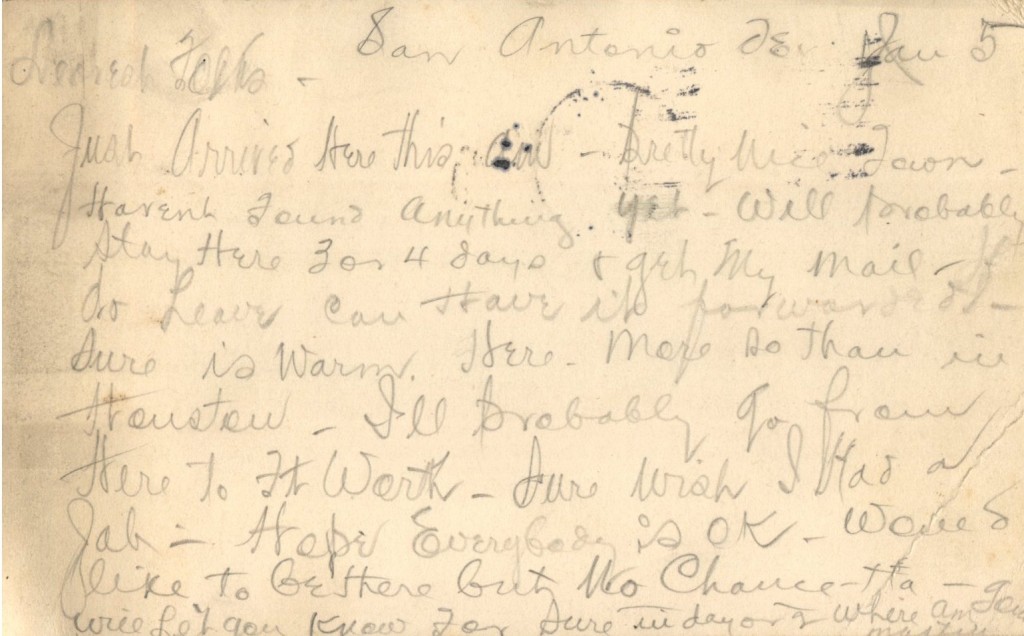 San Antonio Tex Jan 5
Dearest Folks -
Just Arrived Here this - Pretty Nice Town -
Havent Found Anything yet - Will probably
Stay Here 3 or 4 days & get My Mail - If
do Leave can Have it forwarded -
Sure is Warm. Here - More so than in
Houston - I'll probably go from
Here to Ft Worth - Sure wish I Had a
Job - Hope Everybody is OK - Would
like to be there but No Chance -
will Let you Know For Sure in day or 2 where am